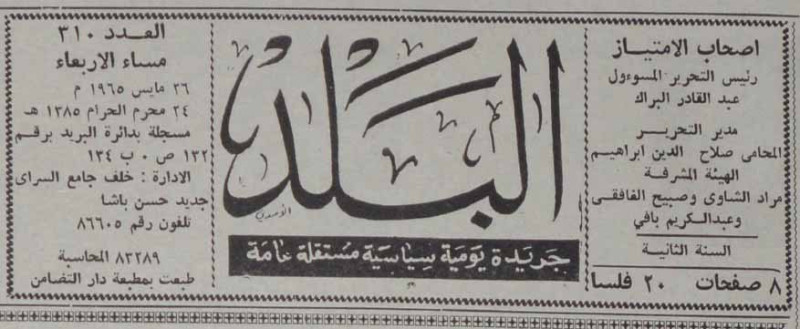 اصحاب الامتياز
رئيس التحرير المسوءول
عبد القادر البراك
مدير التحرير
المحامى صلاح الدين ابراهيم
الهيئة المشرفة
مراد الشاوى وصبيح الغافقى
وعبدالكريم بافي
السنة الثانية
٨ صفحات ٢٠ فلسا
البلد
جريدة يومية سياسية مستقلة عامة
العدد ٣١٠
مساء الاربعاء
٢٦ مايس ١٩٦٥ م
٢٤ محرم الحرام ١٣٨٥ هـ
مسجلة بدائرة البريد برقم
١٣٢ ص ٠ ب ١٣٤
الادارة : خلف جامع السراى
جديد حسن باشا
تلفون رقم ٨٦٦٠٥
٨٢٢٨٩ المحاسبة
طبعت بمطبعة دار التضامن